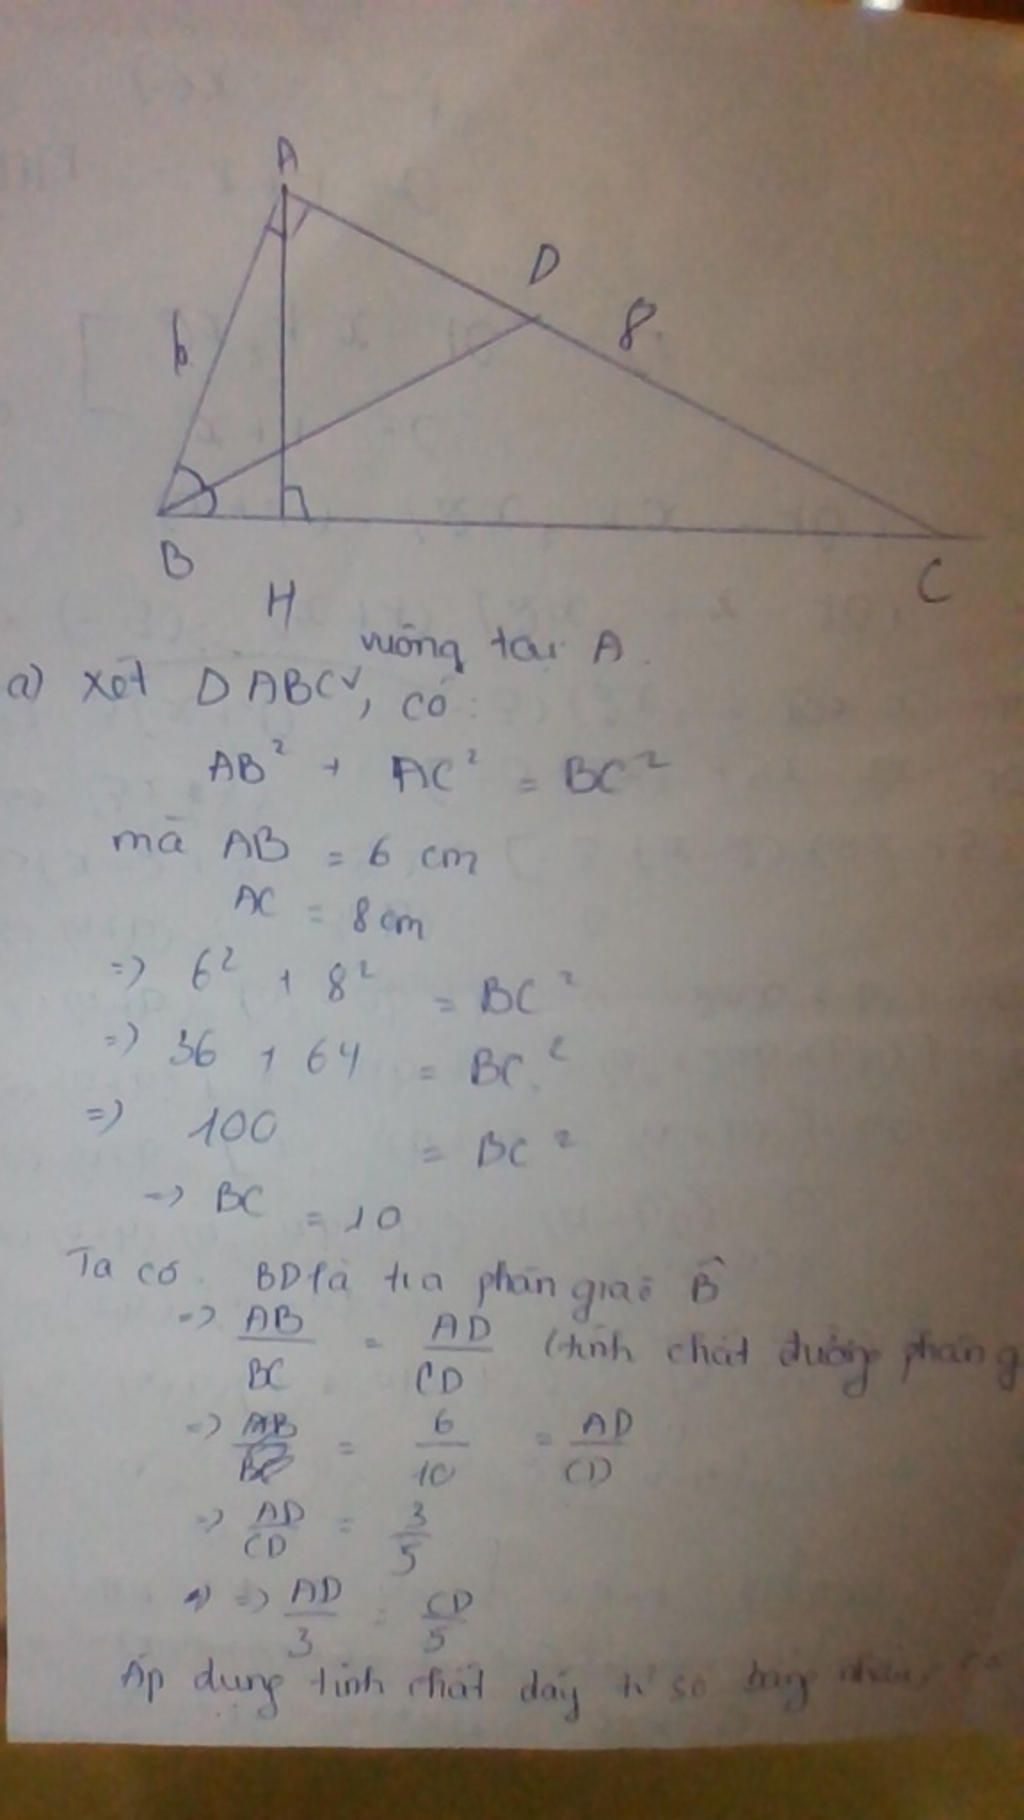 A
D
8
6
B
H
C
vuông tại A.
a) Xét Δ ABC, có:
AB² + AC² = BC²
mà AB = 6 cm
AC = 8 cm
=> 6² + 8² = BC²
=> 36 + 64 = BC²
=> 100 = BC²
=> BC = 10
Ta có BD là tia phân giác B̂
=> AB/BC = AD/CD (tính chất đường phân g
=> AB/BC = 6/10 = AD/CD
=> AD/CD = 3/5
=> AD/3 = CD/5
Áp dụng tính chất dãy tỉ số bằng nhau, có